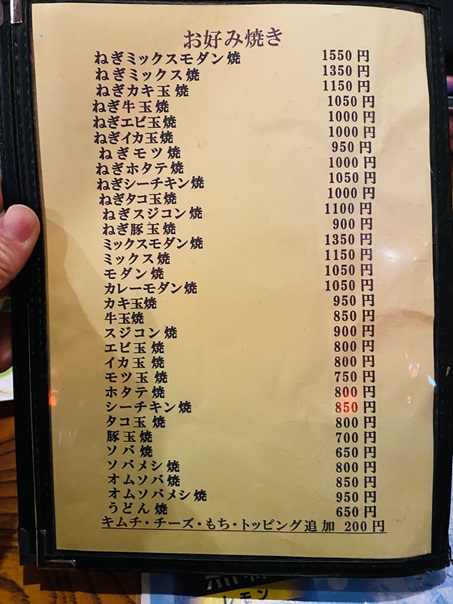 お好み焼き
ねぎミックスモダン焼 1550円
ねぎミックス焼 1350円
ねぎカキ玉焼 1150円
ねぎ牛玉焼 1050円
ねぎエビ玉焼 1000円
ねぎイカ玉焼 1000円
ねぎモツ焼 950円
ねぎホタテ焼 1000円
ねぎシーチキン焼 1050円
ねぎタコ玉焼 1000円
ねぎスジコン焼 1100円
ねぎ豚玉焼 900円
ミックスモダン焼 1350円
ミックス焼 1150円
モダン焼 1050円
カレーモダン焼 1050円
カキ玉焼 950円
牛玉焼 850円
スジコン焼 900円
エビ玉焼 800円
イカ玉焼 800円
モツ玉焼 750円
ホタテ焼 800円
シーチキン焼 850円
タコ玉焼 800円
豚玉焼 700円
ソバ焼 650円
ソバメシ焼 800円
オムソバ焼 850円
オムソバメシ焼 950円
うどん焼 650円
キムチ・チーズ・もち・トッピング追加 200円
レモン